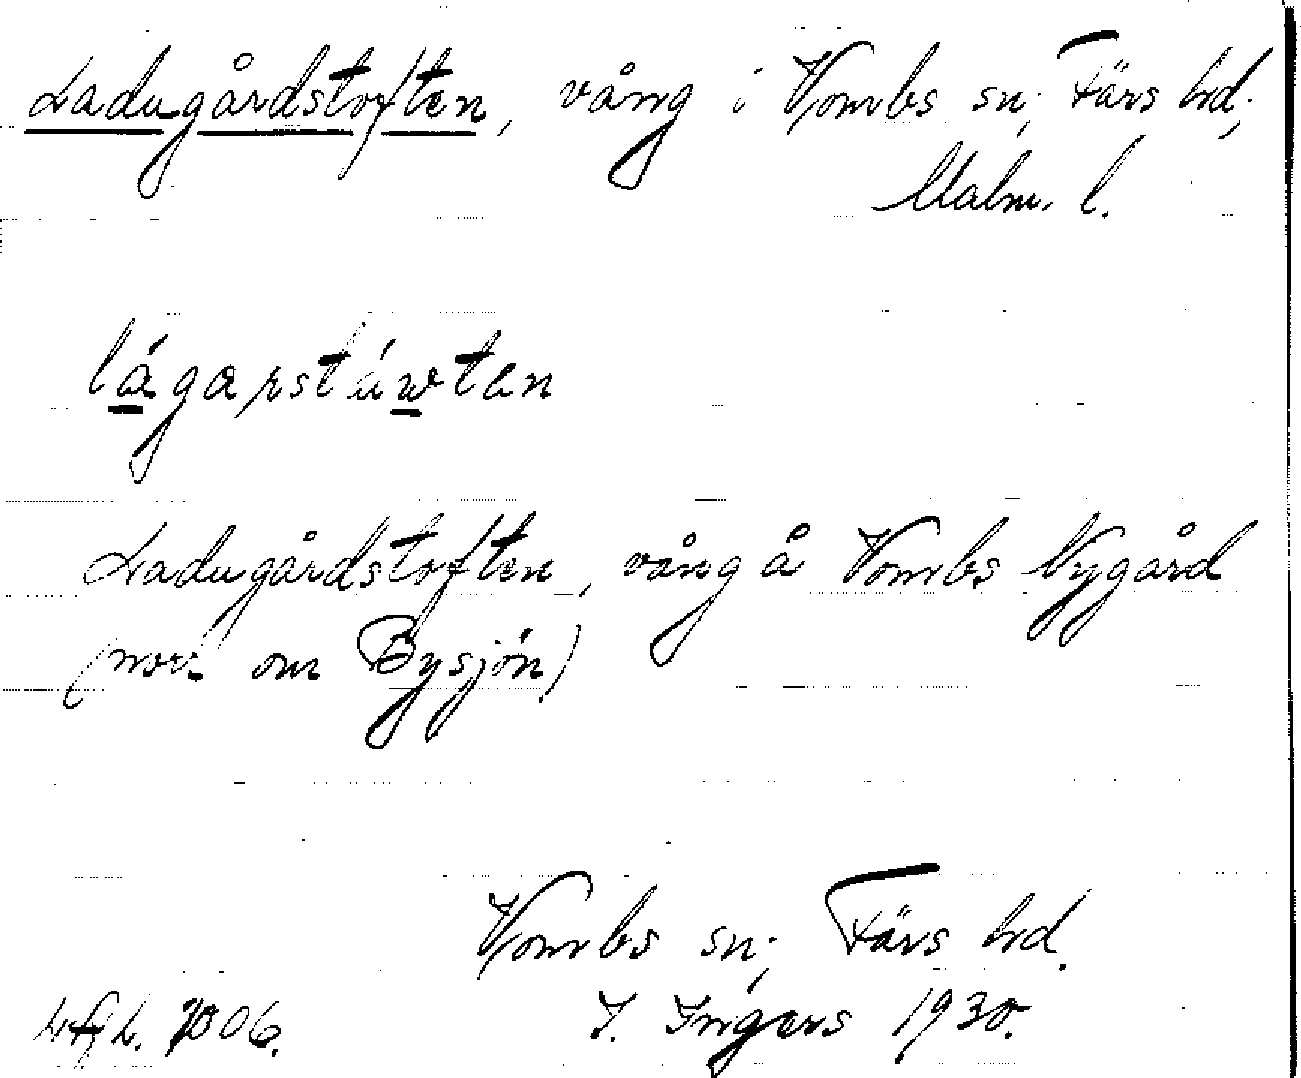 Ladugårdstoften, vång i Vombs sn; Färs hd;
Malm. l.
lágarstáwten
Ladugårdstoften, vång å Vombs Nygård
(norr om Bysjön)
Vombs sn; Färs hd.
I. Ingers 1930.